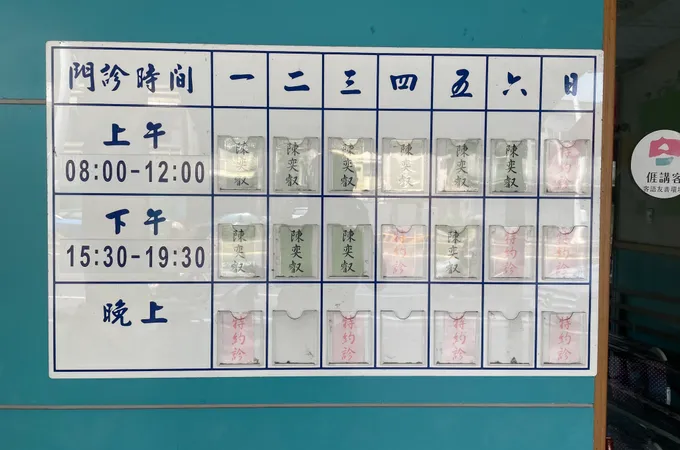 門診時間 一 二 三 四 五 六 日
上午
08:00-12:00 陳奕叡 陳奕叡 陳奕叡 陳奕叡 陳奕叡 陳奕叡 特約診
下午
15:30-19:30 陳奕叡 陳奕叡 陳奕叡 特約診 陳奕叡 特約診 特約診
晚上 特約診 特約診 特約診 特約診
𠊎講客
客語友善環境